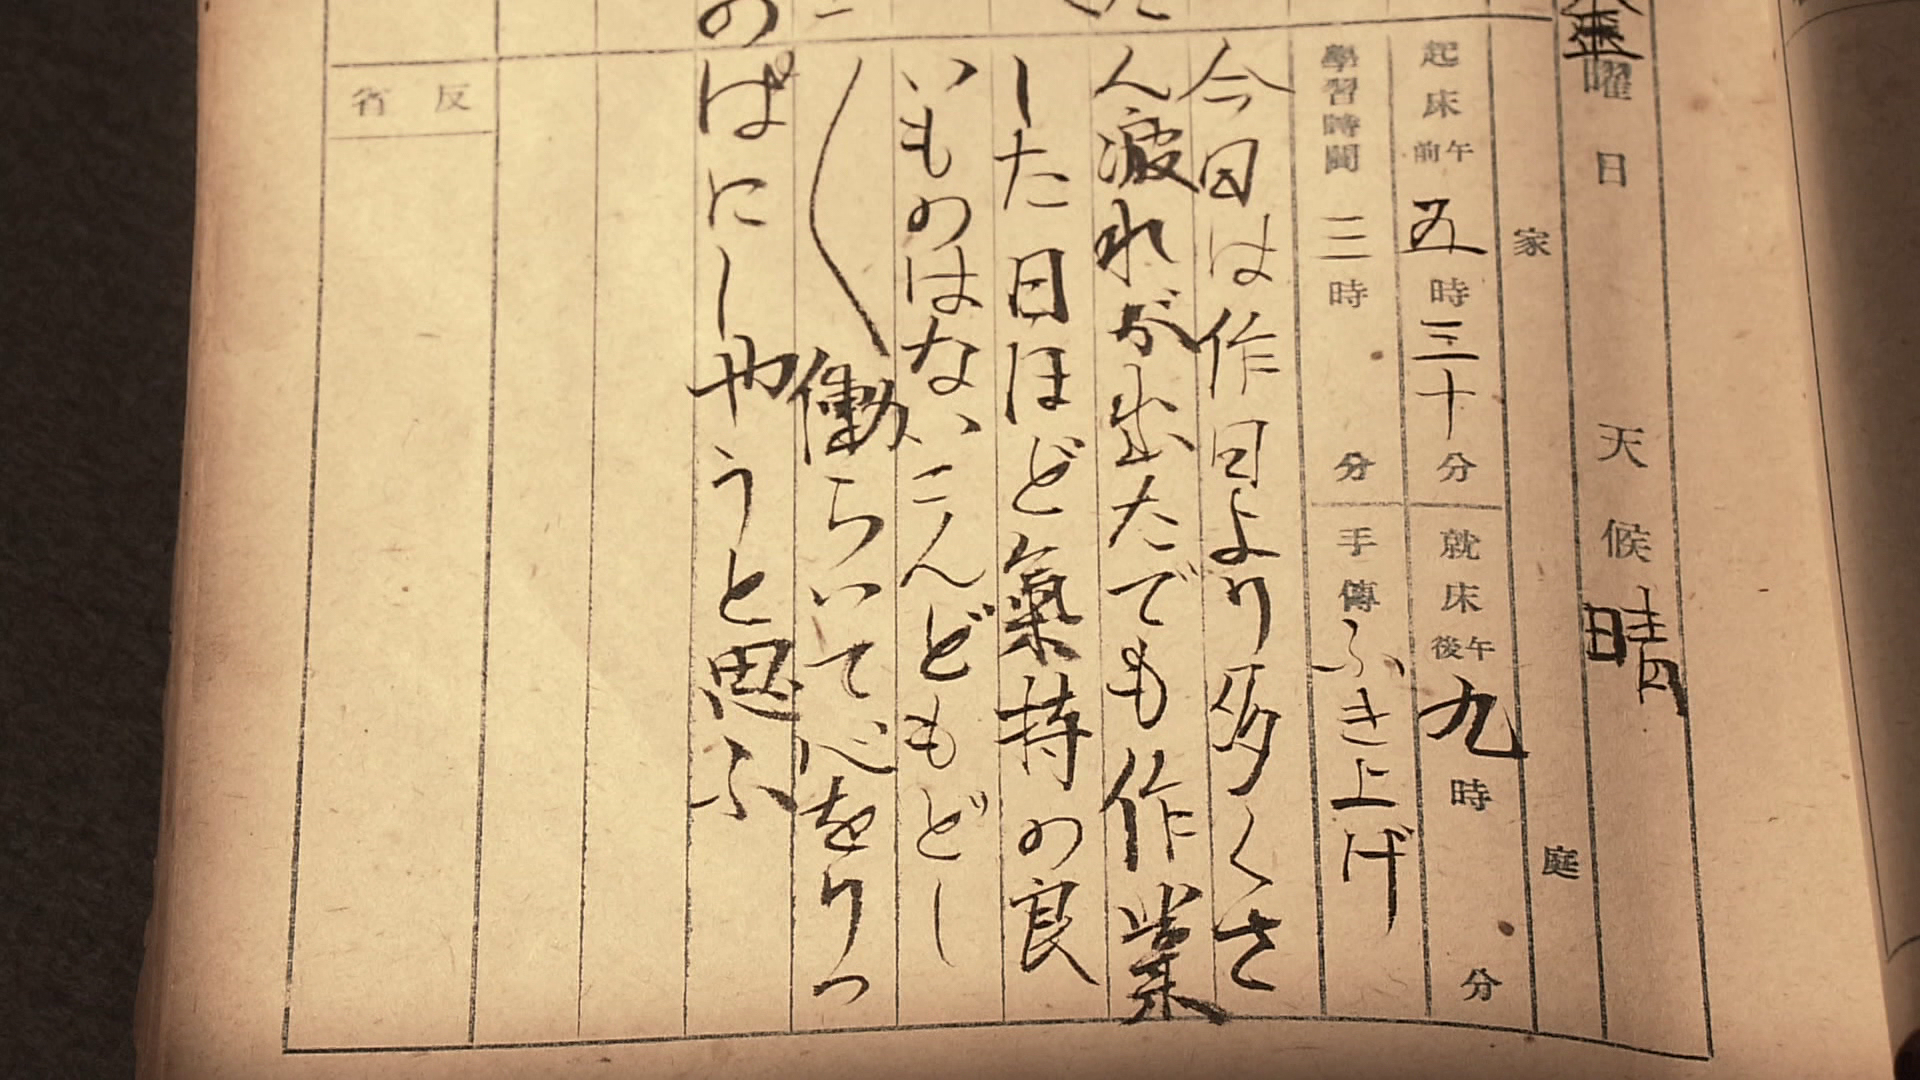 曜日 天候 晴
家庭
起床 午前 五時三十分 就床 午後 九時 分
學習時間 三時 分 手傳 ふき上げ
今日は作日より多くさ
ん疲れが出たでも作業
した日ほど氣持の良
いものはないこんどもどし
〳〵働らいて心をりつ
のぱにしやうと思ふ
反省